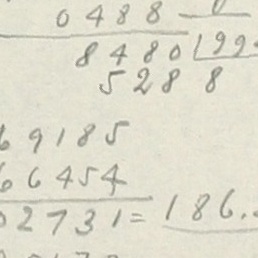 0488
8480 199
5288
69185
66454
02731 = 186.